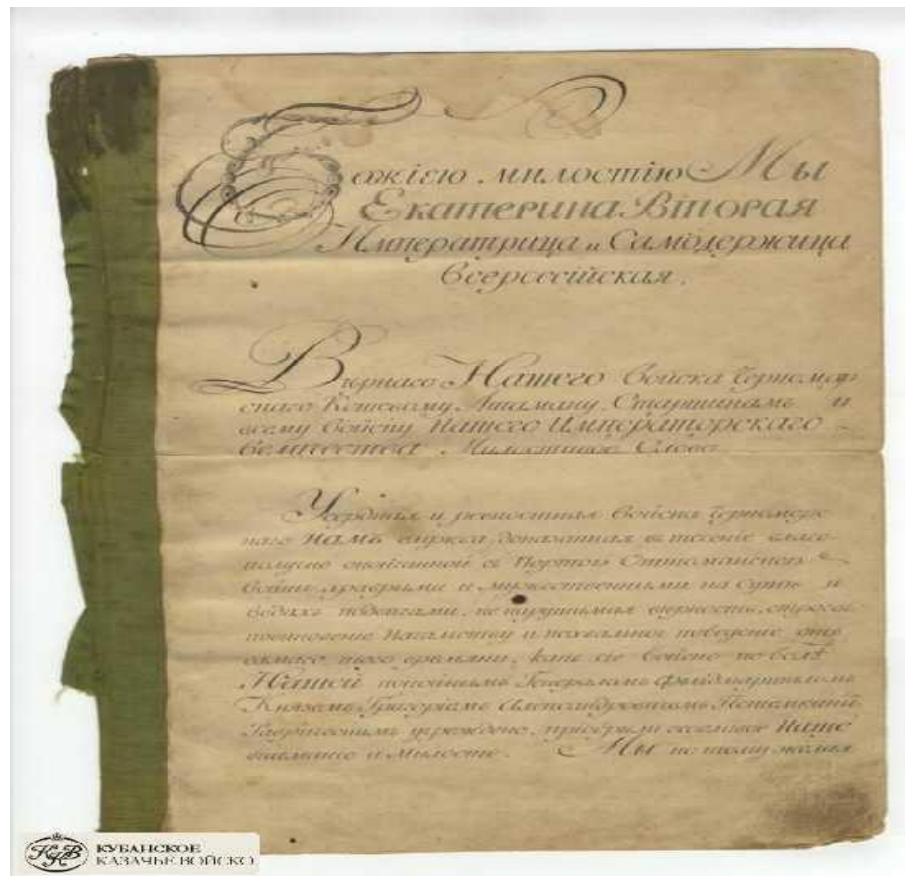 Божіею милостію Мы
Екатерина Вторая
Императрица и Самодержица
Всероссійская.
Вѣрнаго Нашего Войска Черномор
скаго Кошевому Атаману, Старшинамъ и
всему войску Нашего Императорскаго
величества Милостивое Слово
Усердная и ревностная Войска Черномор
скаго Намъ служба, доказанная въ теченіе благо
получно оконченной съ Портою Оттоманскою
войны, храбрыми и мужественными на сушѣ и
водахъ подвигами, не нарушимая верность, строгое
повиновеніе Начальству и похвальное поведеніе отъ
самаго того времяни, какъ сіе войско по волѣ
Нашей покойнымъ Генераломъ Фельдмаршаломъ
Княземъ Григоріемъ Александровичемъ Потемкинымъ
Таврическимъ учреждено, пріобрѣли особливое Наше
вниманіе и милость. Мы по тому желая
ККВ
КУБАНСКОЕ
КАЗАЧЬЕ ВОЙСКО